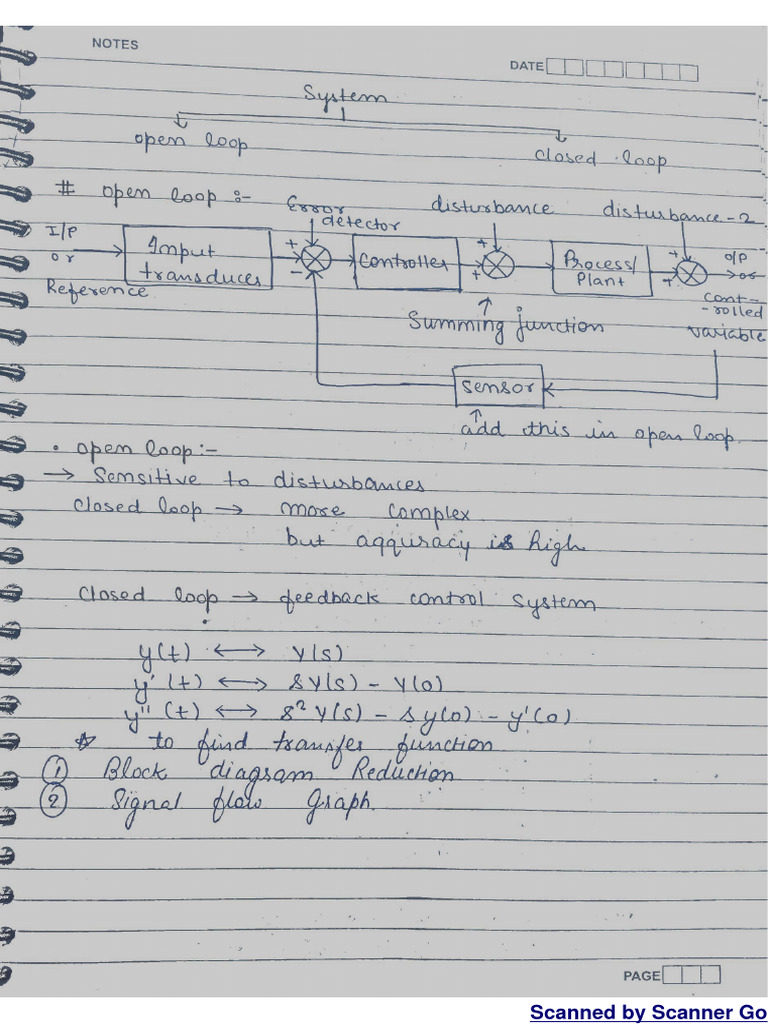 NOTES
DATE
System
open loop
closed loop
# open loop :-
Error detector
disturbance
disturbance-2
I/P or Reference
Input transducer
+
-
Controller
+
+
Process/ Plant
+
+
O/P or
Cont-
-rolled
variable
Summing junction
Sensor
add this in open loop.
• open loop :-
→ Sensitive to disturbances
closed loop → more complex
but aqquracy is high
closed loop → feedback control system
y(t) ⟷ Y(s)
y'(t) ⟷ sY(s) - Y(0)
y''(t) ⟷ s²Y(s) - sy(0) - y'(0)
☆ to find transfer function
① Block diagram Reduction
② Signal flow Graph.
PAGE
Scanned by Scanner Go